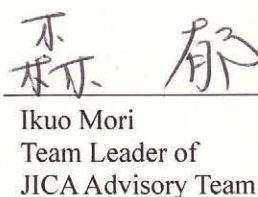 森 郁
Ikuo Mori
Team Leader of
JICA Advisory Team